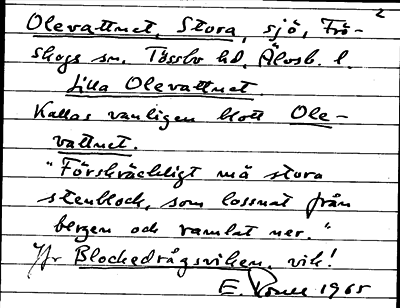 2
Olevattnet, Stora, sjö, Frö-
skogs sn. Tössbo hd, Älvsb. l.
Lilla Olevattnet.
Kallas vanligen blott Ole-
vattnet.
"Förskräckligt må stora
stenblock, som lossnat från
bergen och ramlat ner."
Jfr Blockedrågsviken, vik!
E. 1965